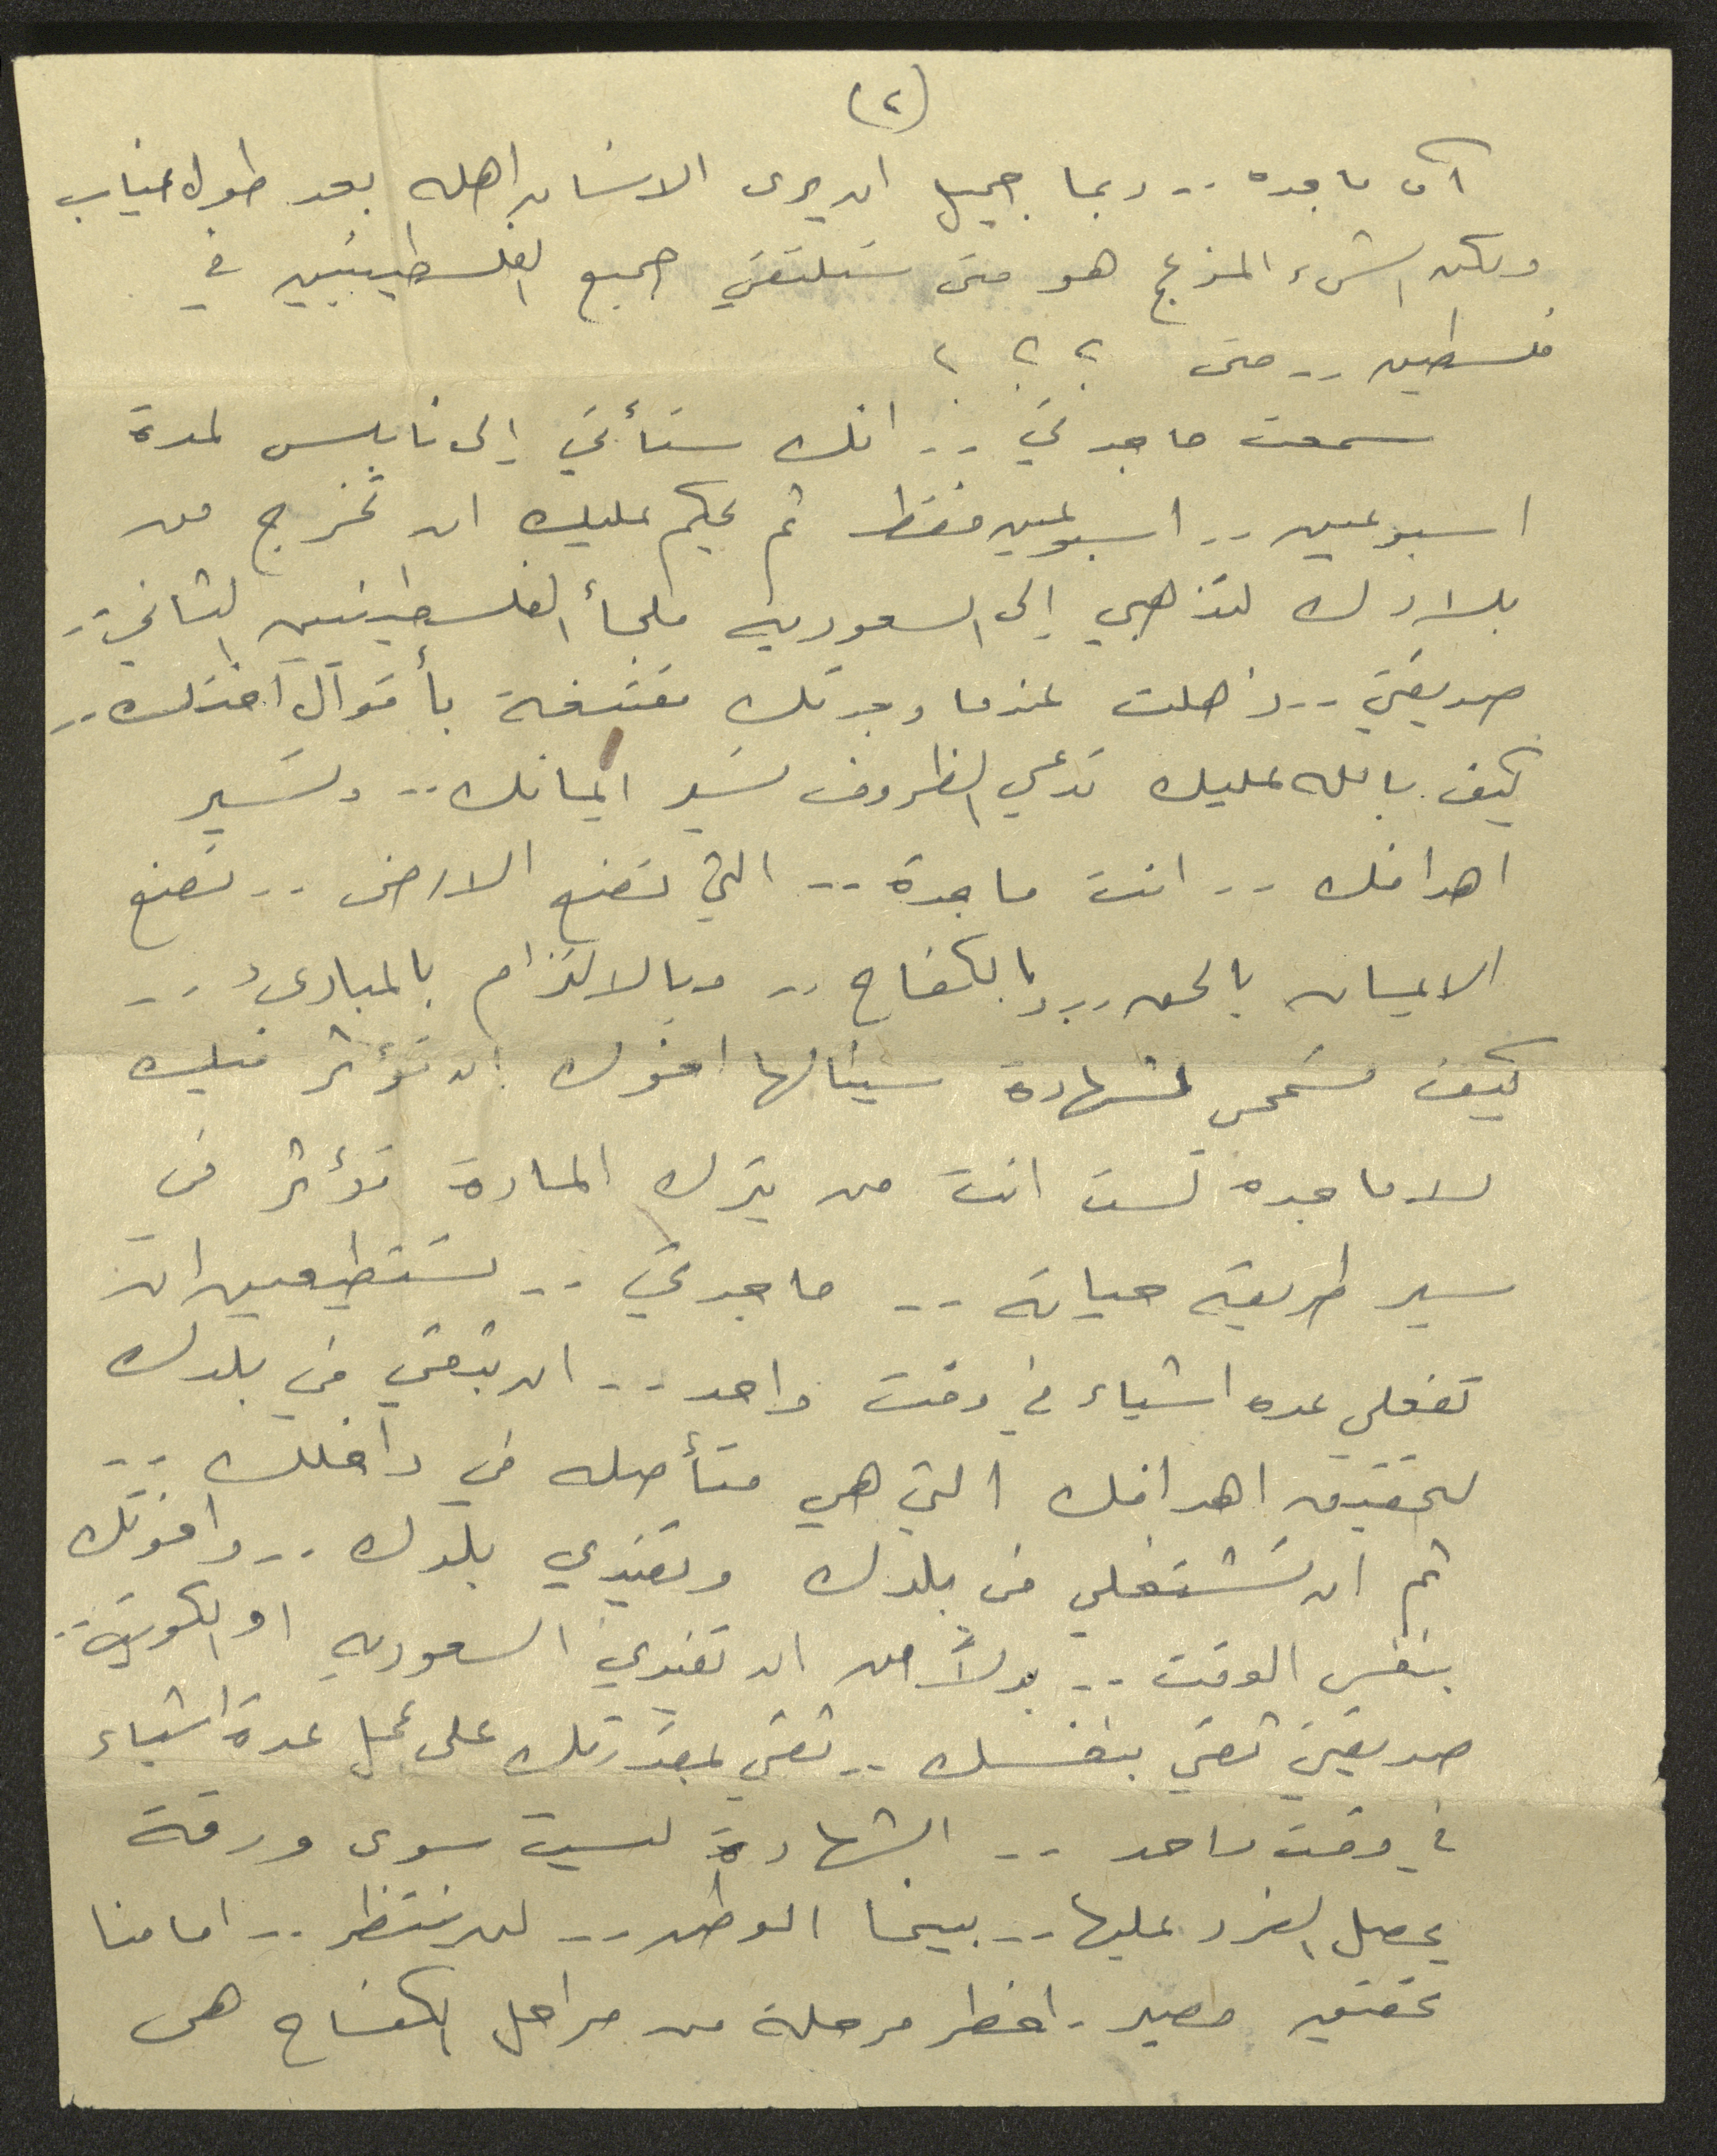 (٢)
آه ماجده .. ربما جميل ان يرى الانسان اهله بعد طول غياب
ولكن الشيء المزعج هو متى سنلتقي جميع الفلسطينيين في
فلسطين .. متى ؟ ؟ ؟
سمعت ماجدتي .. انك ستأتي إلى نابلس لمدة
اسبوعين .. اسبوعين فقط ثم يحكم عليك ان تخرج من
بلادك لتذهبي إلى السعوديه ملجأ الفلسطينيين الثاني ..
صديقتي .. ذهلت عندما وجدتك مقتنعة بأقوال اختك ..
كيف بالله عليك تدعي الظروف تسير ايمانك .. وتسير
اهدافك .. انت ماجدة .. التي تصنع الارض .. تصنع
الايمان بالحق .. وبالكفاح .. وبالالتزام بالمبادىء ..
كيف تسمحي لشهادة سينالها اخوك ان تؤثر فيك
لا ماجده لست انت من يترك المادة تؤثر في
سير طريقة حياته .. ماجدتي .. تستطيعين ان
تفعلي عده اشياء في وقت واحد .. ان تبقي في بلدك
لتحقيق اهدافك التي هي متأصله في داخلك ..
ثم ان تشتغلي في بلدك وتفيدي بلدك .. واخوتك
بنفس الوقت .. بدلاً من ان تفيدي السعوديه او الكويت ..
صديقتي ثقي بنفسك .. ثقي بمقدرتك على عمل عدة اشياء
في وقت واحد .. الشهادة ليست سوى ورقة
يحصل الفرد عليها .. بينما الوطن .. لن ينتظر .. امامنا
تحقيق مصير . اخطر مرحلة من مراحل الكفاح هي